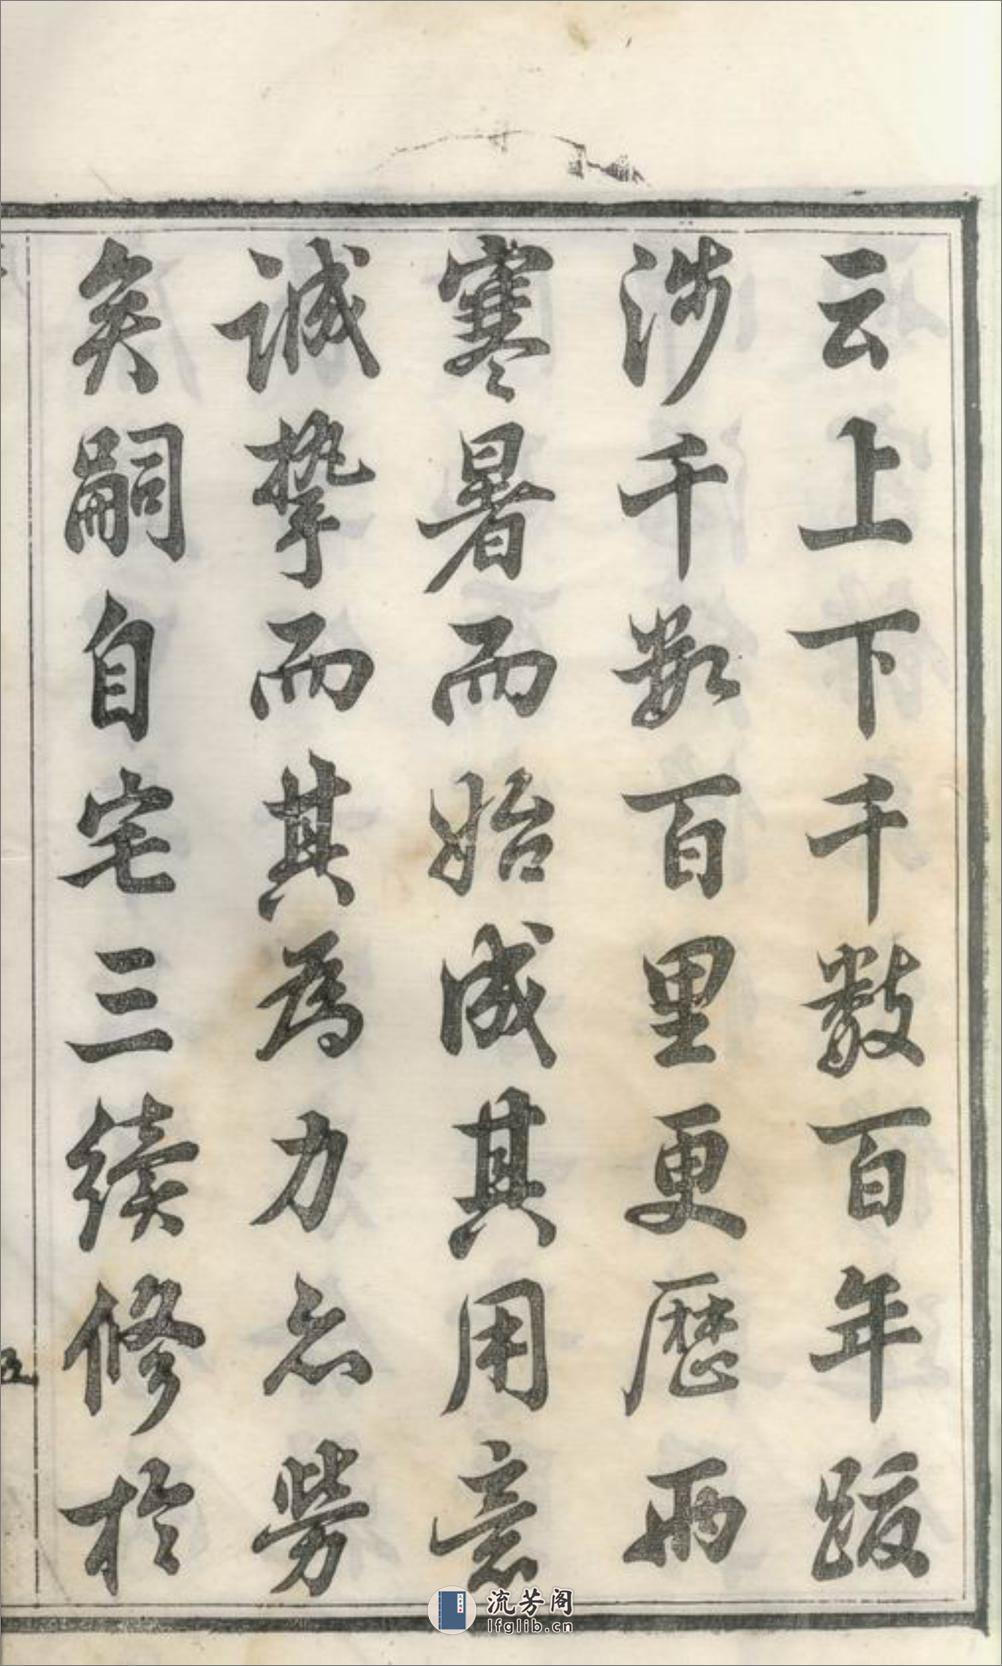 云上下千數百年跋
涉千数百里更歷兩
寒暑而始成其用意
誠摯而其為力亦勞
矣嗣自宅三續修於
流芳阁
lfglib.cn